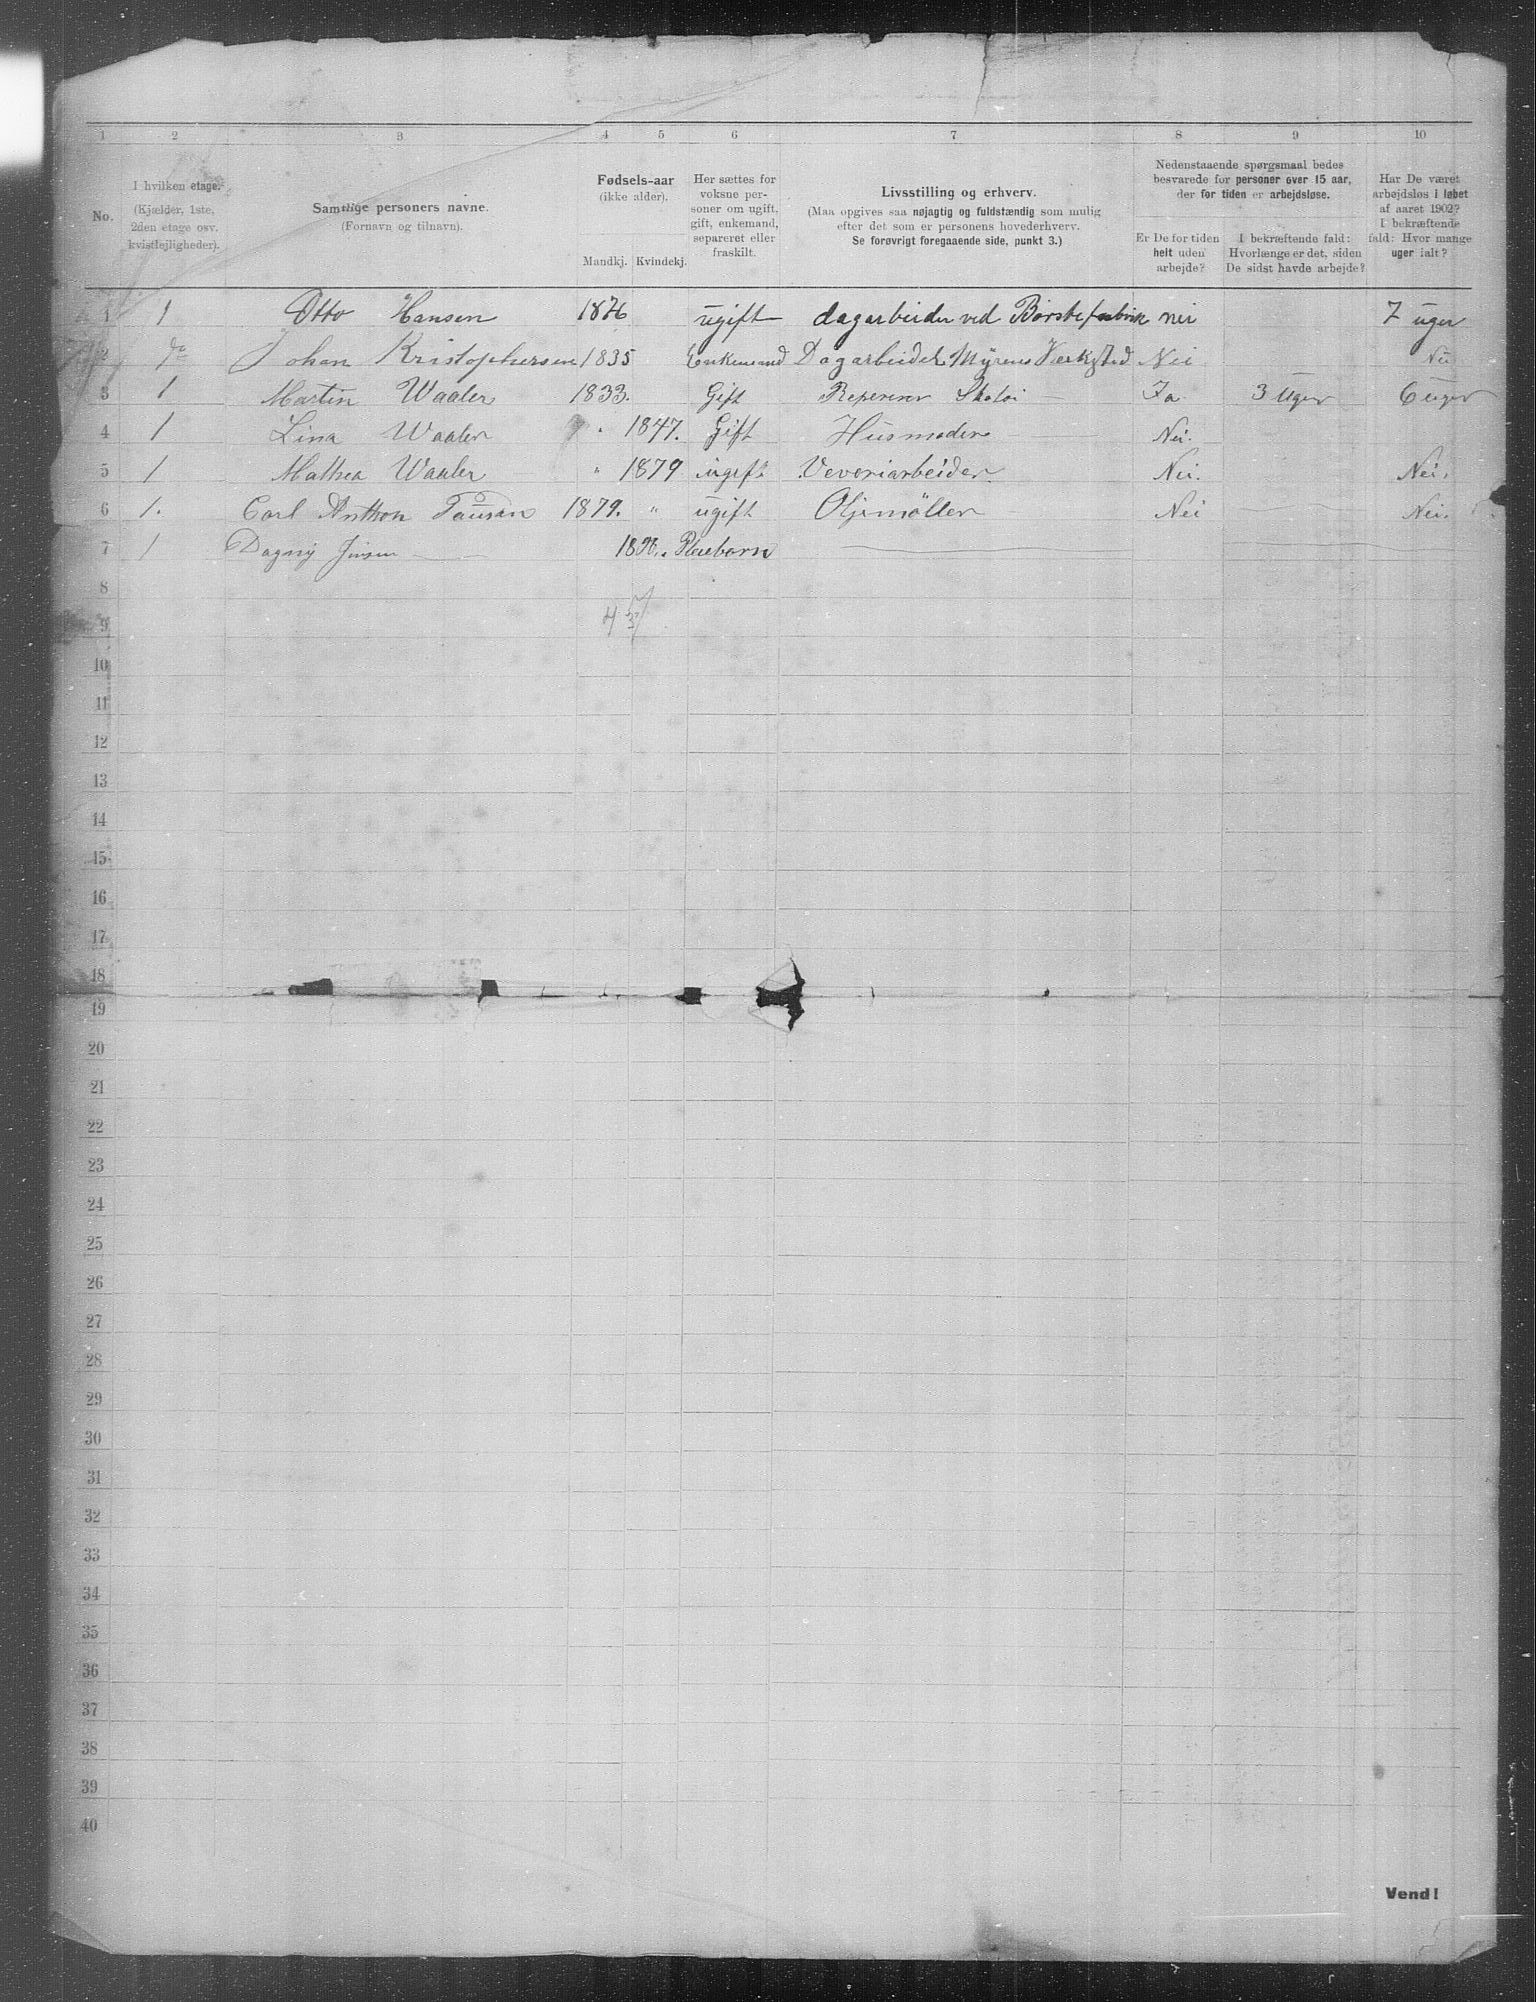 1 2 3 4 5 6 7 8 9 10
No.
I hvilken etage.
(Kjælder, 1ste,
2den etage osv.
kvistlejligheder).
Samtlige personers navne.
(Fornavn og tilnavn).
Fødsels-aar
(ikke alder).
Mandkj. Kvindekj.
Her sættes for
voksne per-
soner om ugift,
gift, enkemand,
separeret eller
fraskilt.
Livsstilling og erhverv.
(Maa opgives saa nøjagtig og fuldstændig som mulig
efter det som er personens hovederhverv.
Se forøvrigt foregaaende side, punkt 3.)
Nedenstaaende spørgsmaal bedes
besvarede for personer over 15 aar,
der for tiden er arbejdsløse.
Er De for tiden
helt uden
arbejde?
I bekræftende fald:
Hvorlænge er det, siden
De sidst havde arbejde?
Har De været
arbejdsløs i løbet
af aaret 1902?
I bekræftende
fald: Hvor mange
uger ialt?
1 1 Otto Hansen 1876 ugift dagarbeider ved Børstefabrik nei 7 uger
2 do Johan Kristophersen 1835 Enkemand Dagarbeider Myrens Værksted Nei Nei
3 1 Martin Waaler 1833. Gift Reperere Skotøi Ja 3 Uger 6 uger
4 1 Lina Waaler " 1847. Gift Husmoder Nei.
5 1 Mathea Waaler " 1879 ugift Veveriarbeider Nei. Nei.
6 1. Carl Anthon 1879. " ugift Oljemøller Nei Nei.
7 1 Dagny Jensen Pleiebarn
8
9
10
11
12
13
14
15
16
17
18
19
20
21
22
23
24
25
26
27
28
29
30
31
32
33
34
35
36
37
38
39
40
Vend!